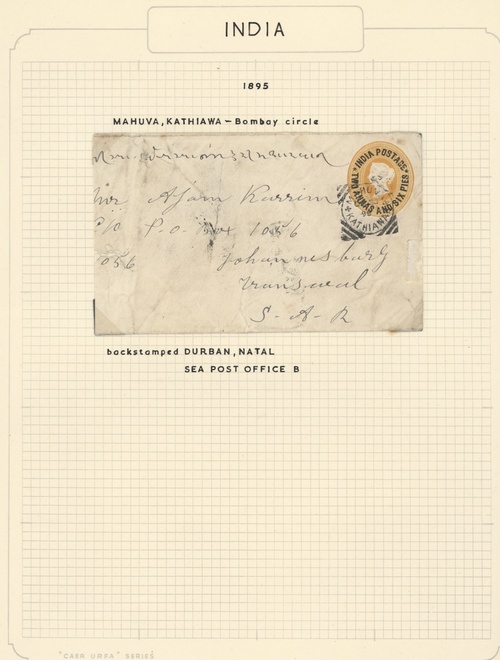 INDIA
1895
MAHUVA, KATHIAWA – Bombay circle
INDIA POSTAGE
TWO ANNAS AND SIX PIES
KATHIAWA
Ajam Karrim
P. O. Box 1056
056
Johannesburg
Transvaal
S - A - R
backstamped DURBAN, NATAL
SEA POST OFFICE B
"CAER URFA" SERIES